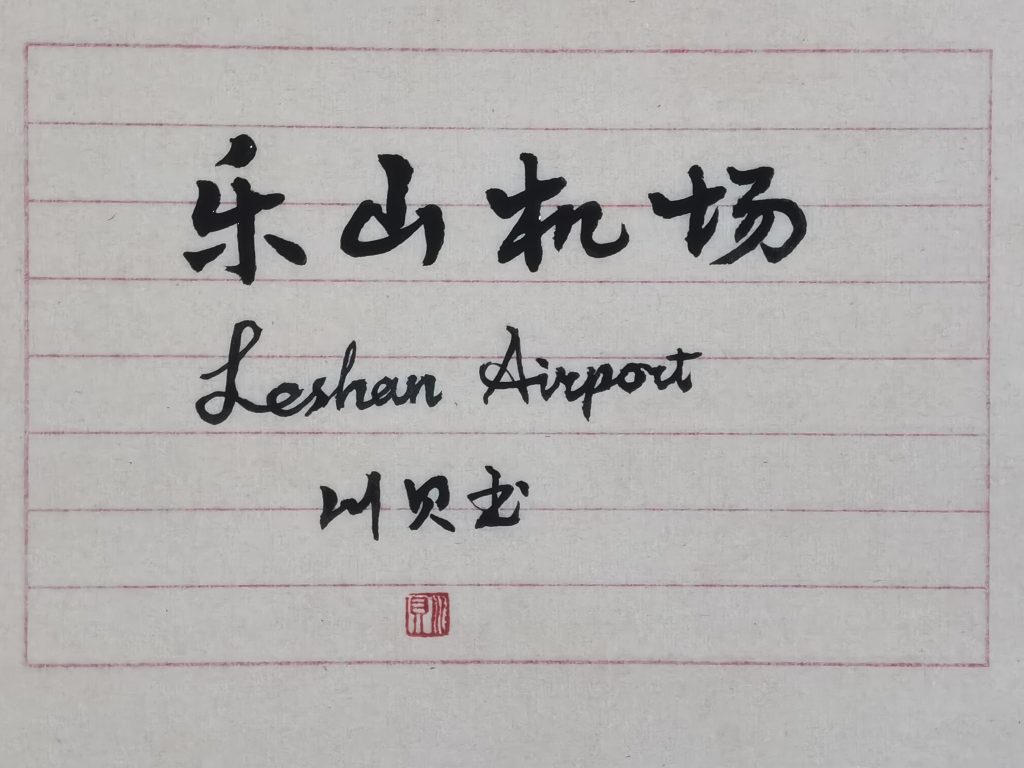 乐山机场
Leshan Airport
川贝书
川貝